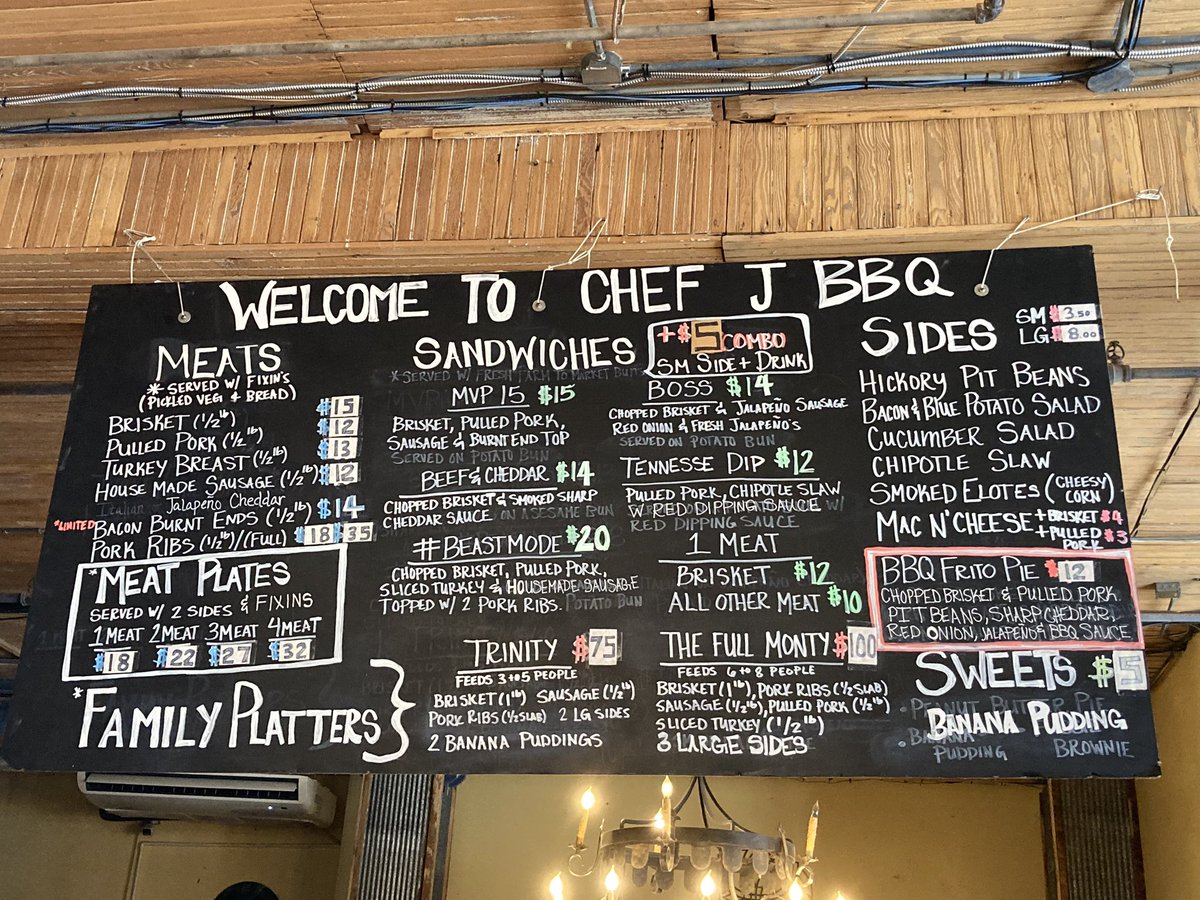 WELCOME TO CHEF J BBQ
MEATS
*SERVED W/ FIXIN'S
(PICKLED VEGI & BREAD)
BRISKET (½ lb) $15
PULLED PORK (½ lb) $12
TURKEY BREAST (½ lb) $13
HOUSE MADE SAUSAGE (½ lb) $12
Italian & Jalapeño Cheddar
*LIMITED BACON BURNT ENDS (½ lb) $14
PORK RIBS (½ lb)/(FULL) $18 $35
*MEAT PLATES
SERVED W/ 2 SIDES & FIXINS
1 MEAT 2 MEAT 3 MEAT 4 MEAT
$18 $22 $27 $32
*FAMILY PLATTERS }
SANDWICHES
*SERVED W/ FRESH FARM TO MARKET BUNS
+$5 COMBO
SM SIDE + DRINK
MVP 15 $15
BRISKET, PULLED PORK,
SAUSAGE & BURNT END TOP
SERVED ON POTATO BUN
BEEF & CHEDDAR $14
CHOPPED BRISKET & SMOKED SHARP
CHEDDAR SAUCE ON A SESAME BUN
#BEASTMODE $20
CHOPPED BRISKET, PULLED PORK,
SLICED TURKEY & HOUSEMADE SAUSAGE
TOPPED W/ 2 PORK RIBS. POTATO BUN
BOSS $14
CHOPPED BRISKET & JALAPEÑO SAUSAGE
RED ONION & FRESH JALAPEÑO'S
SERVED ON POTATO BUN
TENNESSE DIP $12
PULLED PORK, CHIPOTLE SLAW
W RED DIPPING SAUCE W/
RED DIPPING SAUCE
1 MEAT
BRISKET $12
ALL OTHER MEAT $10
TRINITY $75
FEEDS 3 to 5 PEOPLE
BRISKET (1 lb) SAUSAGE (½ lb)
PORK RIBS (½ SLAB) 2 LG SIDES
2 BANANA PUDDINGS
THE FULL MONTY $100
FEEDS 6 to 8 PEOPLE
BRISKET (1 lb), PORK RIBS (½ SLAB)
SAUSAGE (½ lb), PULLED PORK (½ lb)
SLICED TURKEY (½ lb)
3 LARGE SIDES
SIDES
SM $3.50
LG $8.00
HICKORY PIT BEANS
BACON & BLUE POTATO SALAD
CUCUMBER SALAD
CHIPOTLE SLAW
SMOKED ELOTES (CHEESY CORN)
MAC N' CHEESE + BRISKET $4
+ PULLED PORK $3
BBQ FRITO PIE $12
CHOPPED BRISKET & PULLED PORK
PIT BEANS, SHARP CHEDDAR,
RED ONION, JALAPEÑO & BBQ SAUCE
SWEETS $5
PEANUT BUTTER PIE
BANANA PUDDING
PUDDING BROWNIE